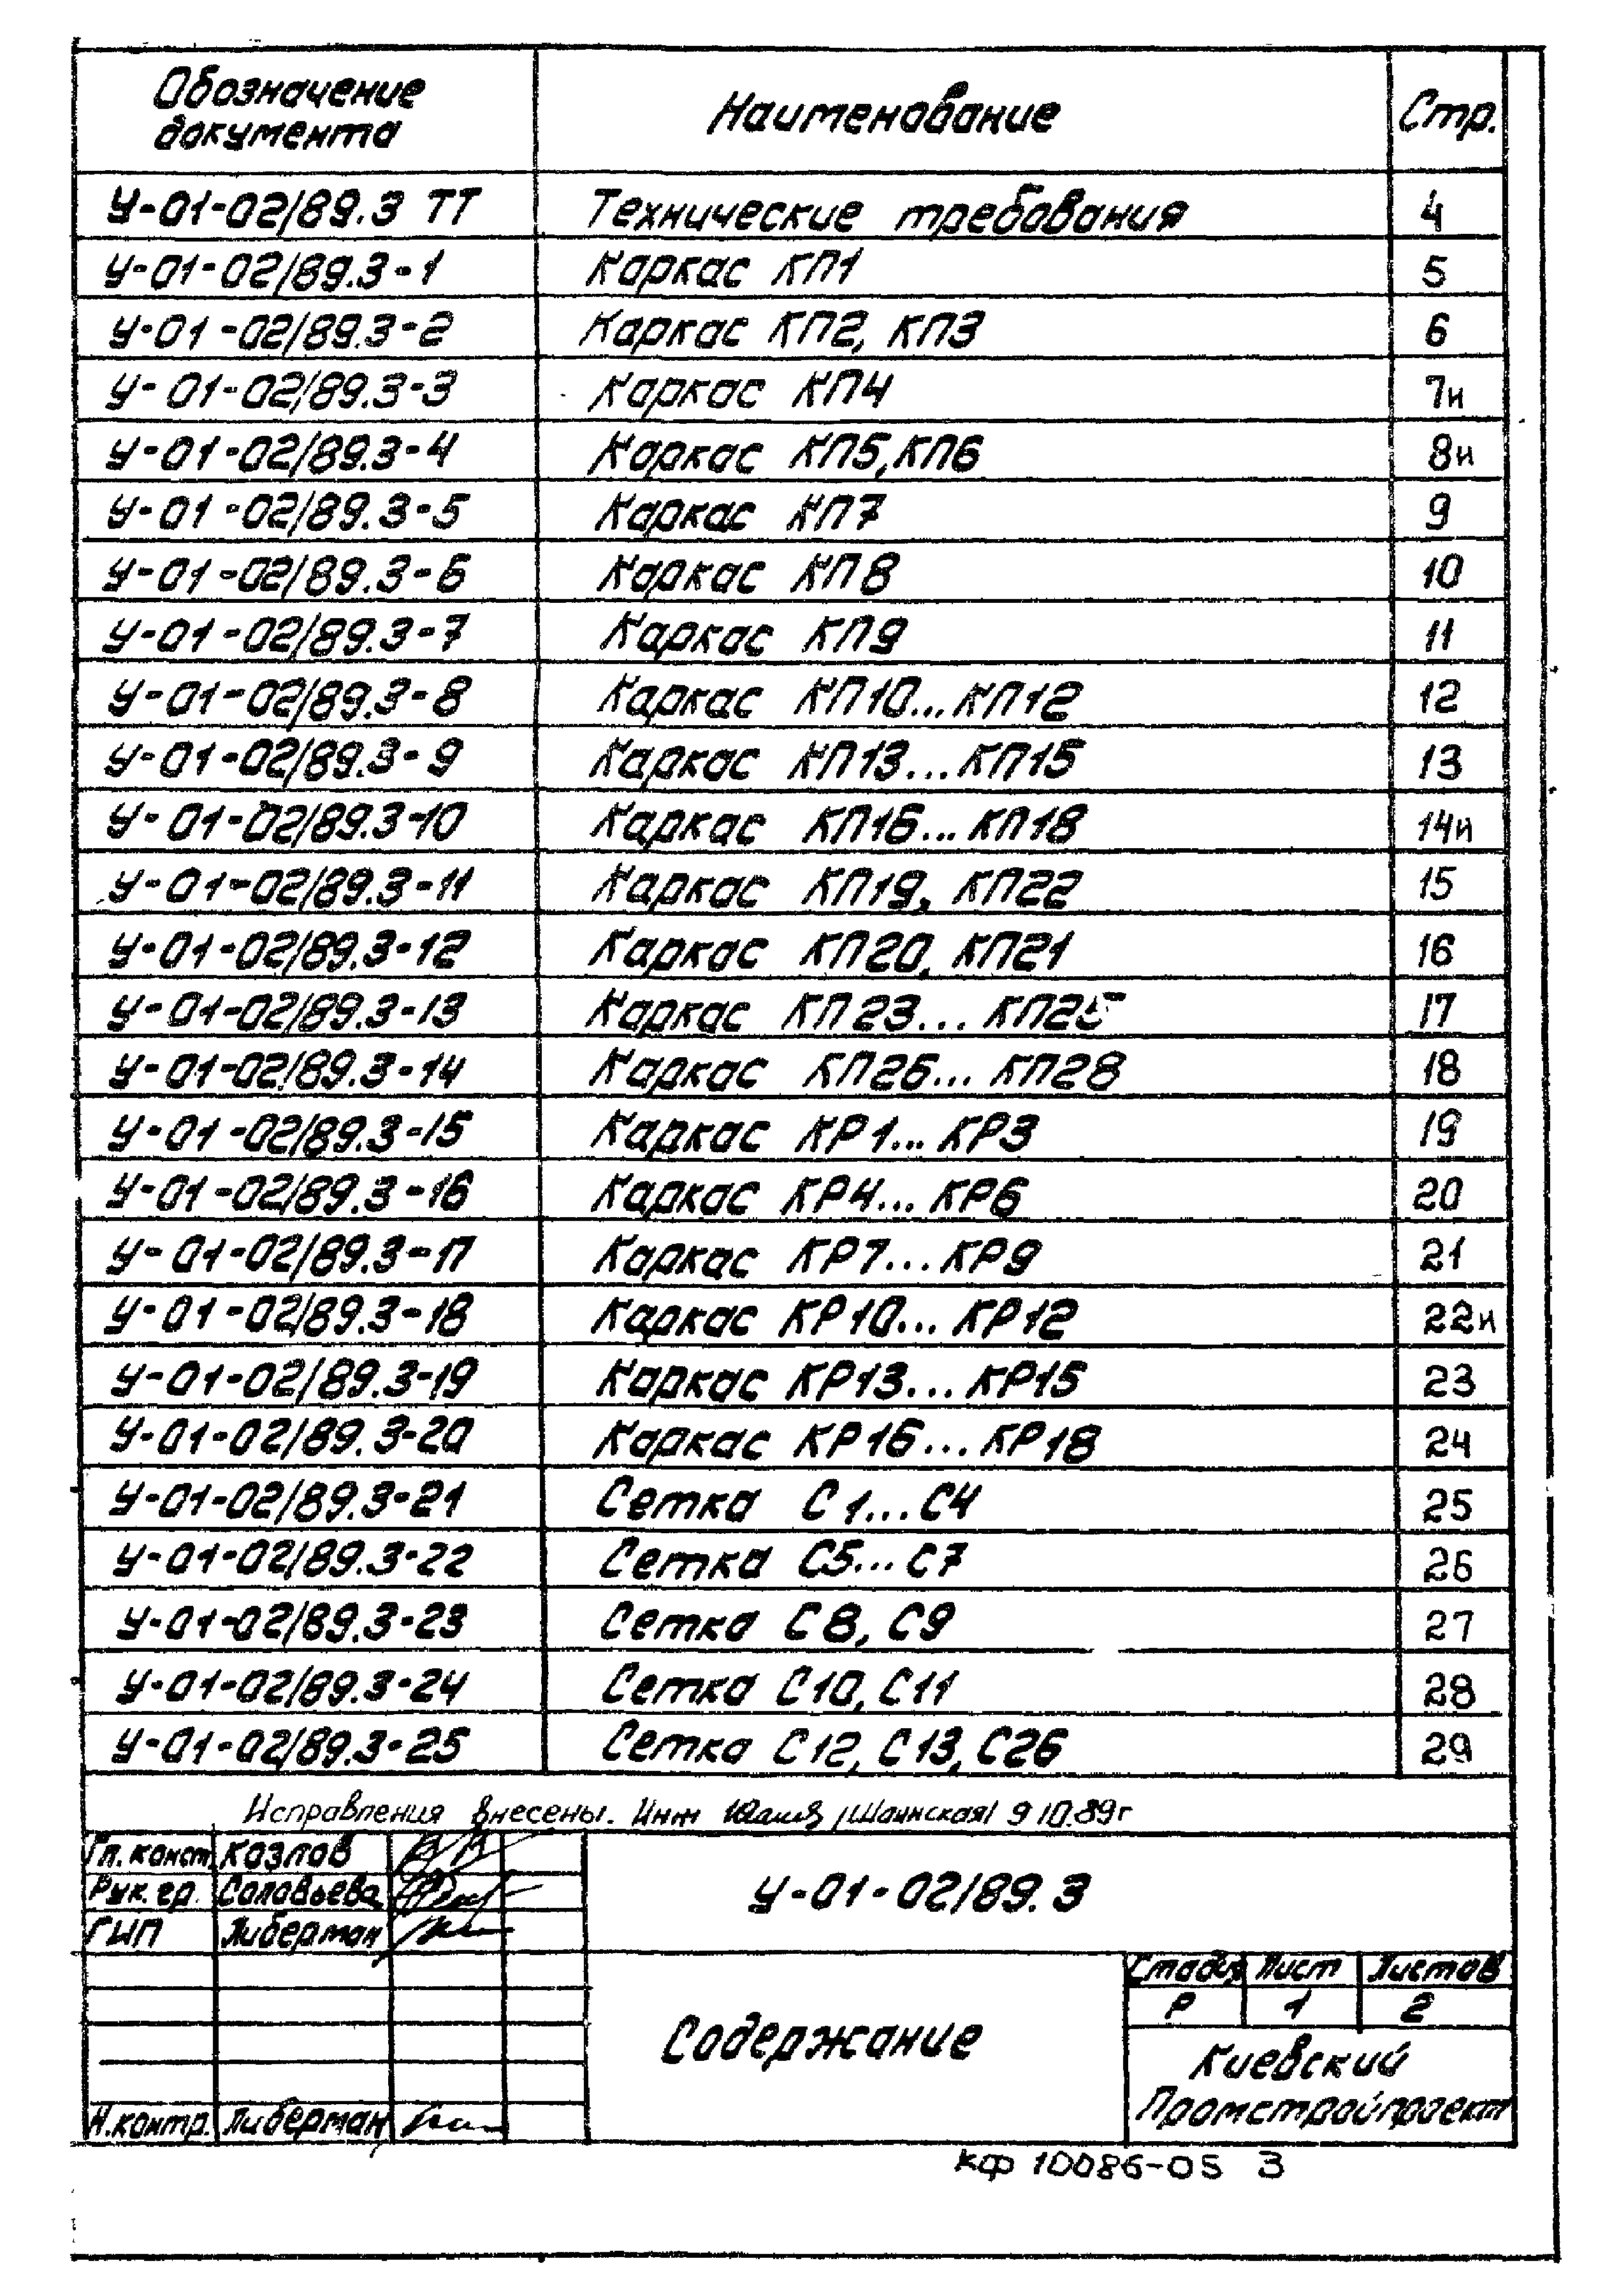 Обозначение документа Наименование Стр.
У-01-02/89.3 ТТ Технические требования 4
У-01-02/89.3-1 Каркас КП1 5
У-01-02/89.3-2 Каркас КП2, КП3 6
У-01-02/89.3-3 Каркас КП4 7и
У-01-02/89.3-4 Каркас КП5, КП6 8и
У-01-02/89.3-5 Каркас КП7 9
У-01-02/89.3-6 Каркас КП8 10
У-01-02/89.3-7 Каркас КП9 11
У-01-02/89.3-8 Каркас КП10...КП12 12
У-01-02/89.3-9 Каркас КП13...КП15 13
У-01-02/89.3-10 Каркас КП16...КП18 14и
У-01-02/89.3-11 Каркас КП19, КП22 15
У-01-02/89.3-12 Каркас КП20, КП21 16
У-01-02/89.3-13 Каркас КП23...КП25 17
У-01-02/89.3-14 Каркас КП26...КП28 18
У-01-02/89.3-15 Каркас КР1...КР3 19
У-01-02/89.3-16 Каркас КР4...КР6 20
У-01-02/89.3-17 Каркас КР7...КР9 21
У-01-02/89.3-18 Каркас КР10...КР12 22и
У-01-02/89.3-19 Каркас КР13...КР15 23
У-01-02/89.3-20 Каркас КР16...КР18 24
У-01-02/89.3-21 Сетка С1...С4 25
У-01-02/89.3-22 Сетка С5...С7 26
У-01-02/89.3-23 Сетка С8, С9 27
У-01-02/89.3-24 Сетка С10, С11 28
У-01-02/89.3-25 Сетка С12, С13, С26 29
Исправления внесены. Инж /Шаинская/ 9 10.89г
Гл. конст. Козлов
Рук. гр. Соловьева
ГИП Либерман
Н.контр. Либерман
У-01-02/89.3
Содержание
Стадия Лист Листов
Р 1 2
Киевский
Промстройпроект
КФ 10086-05 3